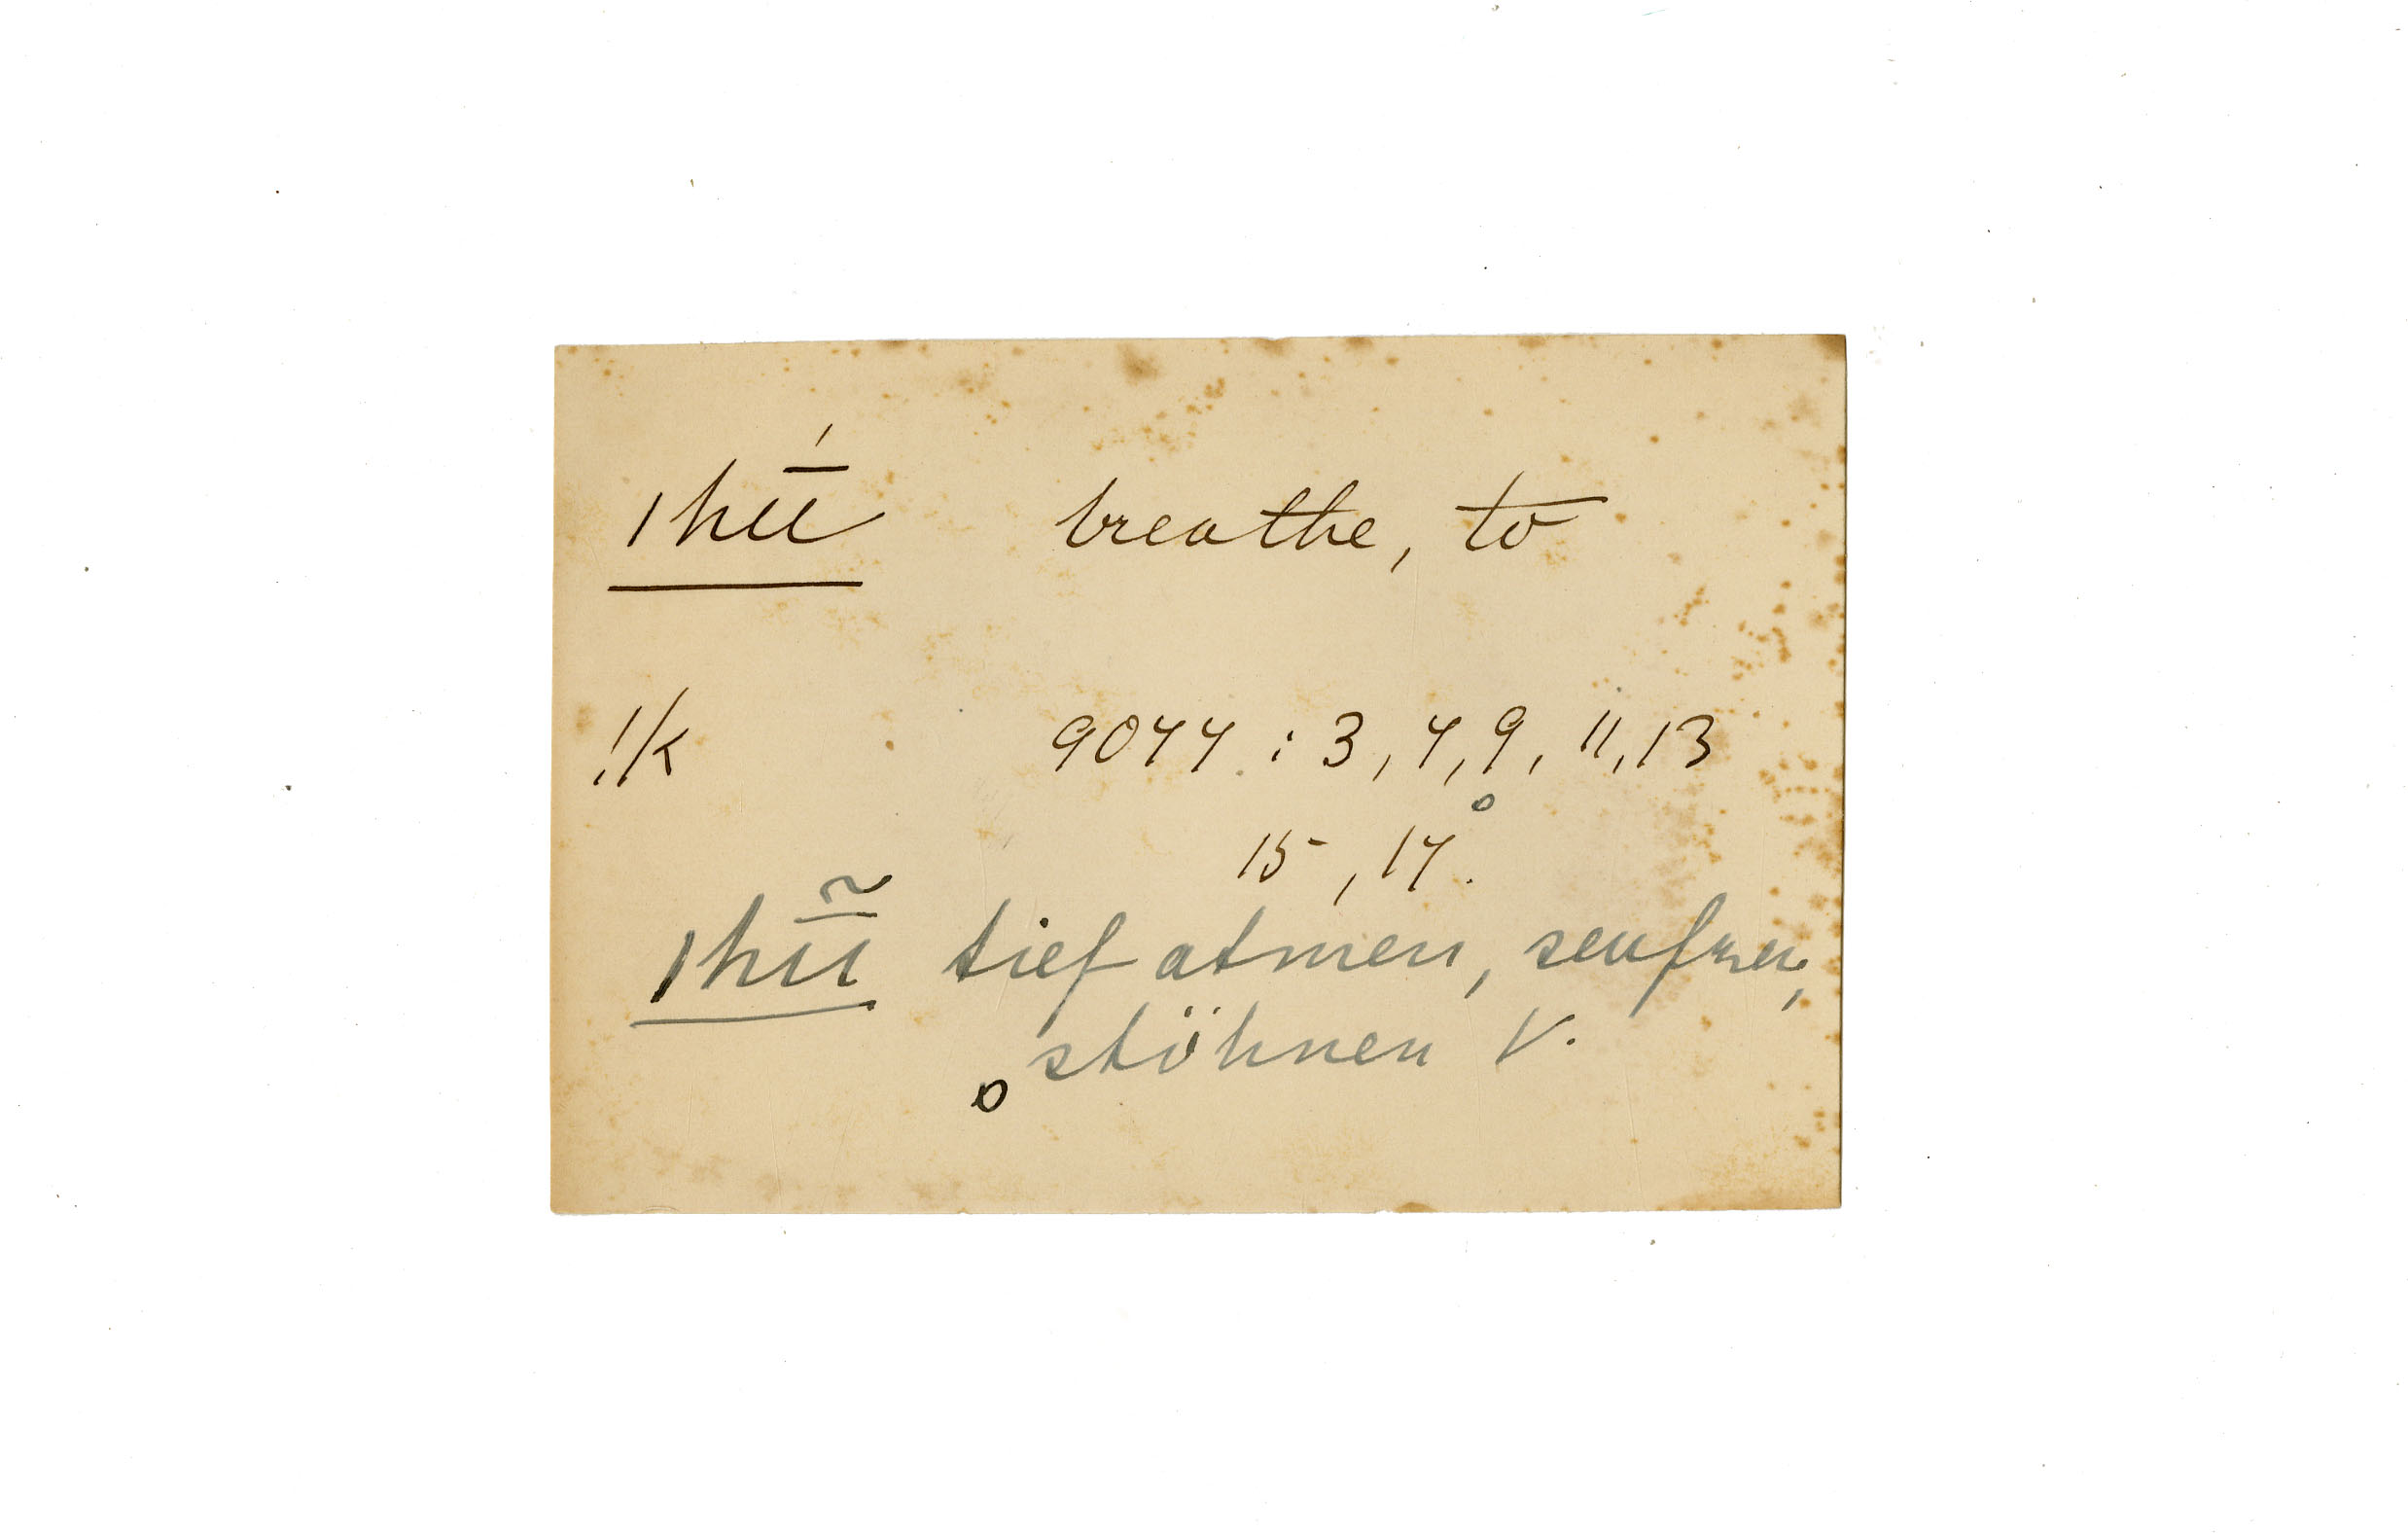 /hū́ breathe, to
!/k 9077 : 3, 7, 9, 11, 13
15, 17.
/hū̃ tief atmen, seufzen,
stöhnen V.